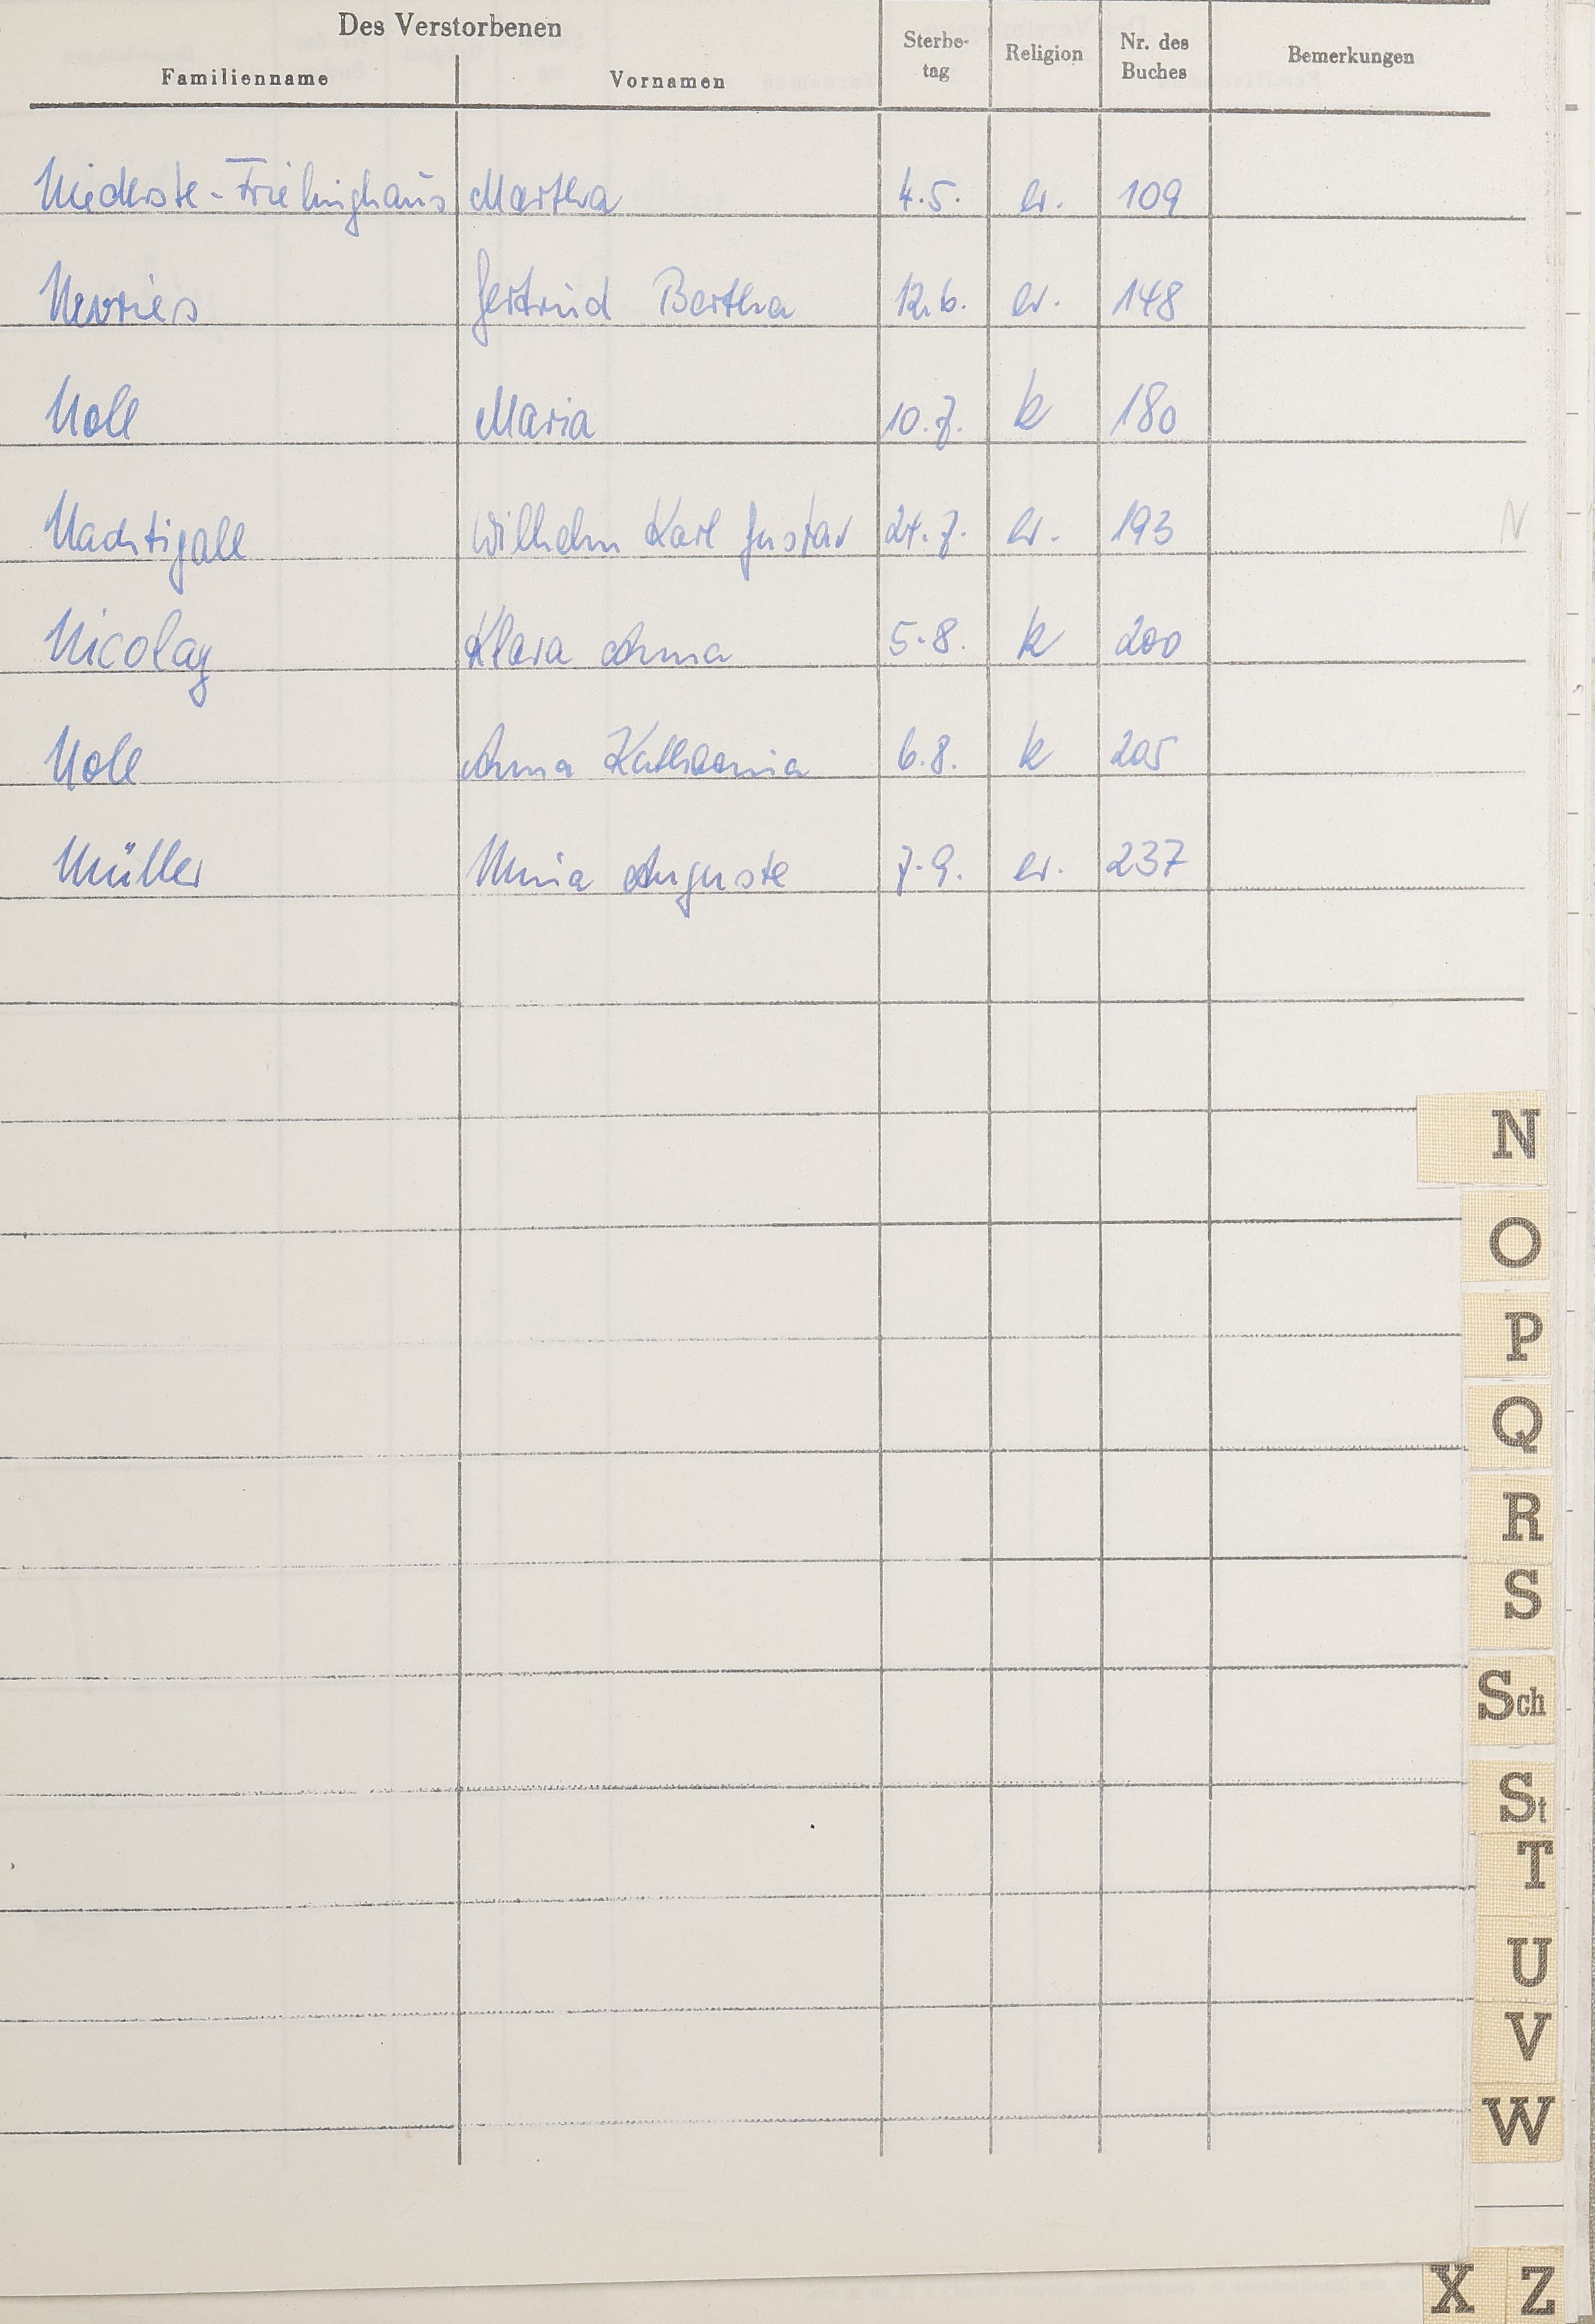 Des Verstorbenen
Familienname Vornamen Sterbe-tag Religion Nr. des Buches Bemerkungen
Niederste-Frielinghaus Martha 4.5. ev. 109
Nevries Gertrud Bertha 12.6. ev. 148
Noll Maria 10.7. k 180
Nachtigall Wilhelm Karl Gustav 24.7. ev. 193 N
Nicolay Klara Anna 5.8. k 200
Noll Anna Katharina 6.8. k 205
Müller Minia Auguste 7.9. ev. 237
N
O
P
Q
R
S
Sch
St
T
U
V
W
X Z